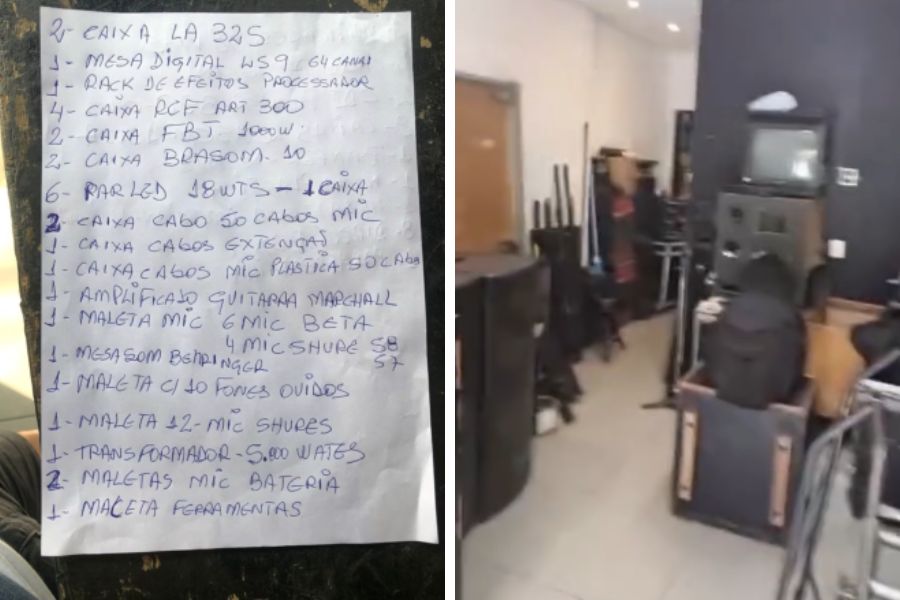 2- CAIXA LA 325
1- MESA DIGITAL LS9 64CANAI
1- RACK DE EFEITOS PROCESSADOR
4- CAIXA RCF ART 300
2- CAIXA FBT 1000W.
2- CAIXA BRASOM. 10
6- PAR LED 18WTS - 1 CAIXA
2- CAIXA CABO 50 CABOS MIC
1- CAIXA CABOS EXTENÇAO
1- CAIXA CABOS MIC PLASTICA 50 CABO
1- AMPLIFICA10 GUITARRA MARCHALL
1- MALETA MIC 6 MIC BETA
4 MIC SHURE 58
57
1- MESA SOM BEHRINGER
1- MALETA C/ 10 FONES OUVIDOS
1- MALETA 12- MIC SHURES
1- TRANSFORMADOR - 5.000 WATES
2- MALETAS MIC BATERIA
1- MALETA FERRAMENTAS